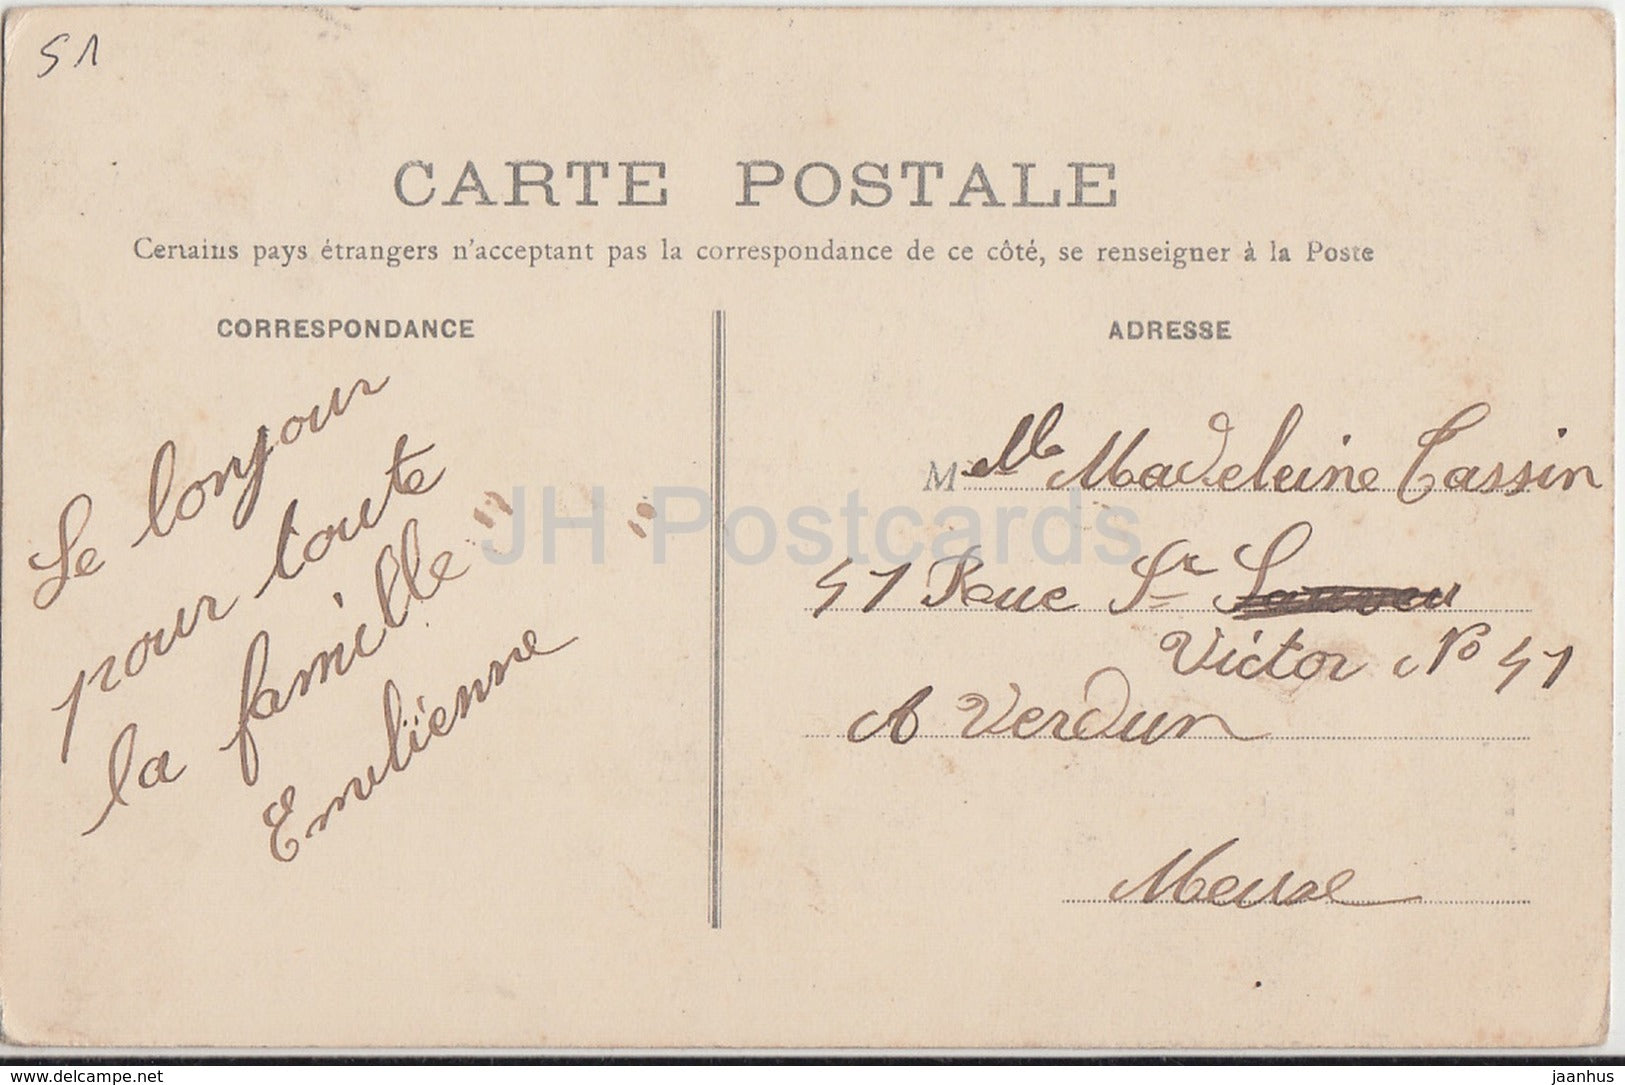 51
CARTE POSTALE
Certains pays étrangers n'acceptant pas la correspondance de ce côté, se renseigner à la Poste
CORRESPONDANCE
Le bonjour
pour toute
la famille
Emeliienne
ADRESSE
Melle Madeleine Cassin
51 Rue St
Victor No 51
A Verdun
Meuse
JH Postcards
www.delcampe.net
jaanhus